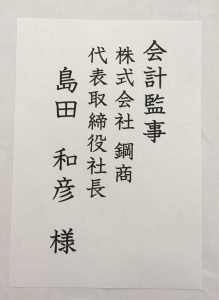 会計監事
株式会社 鋼商
代表取締役社長
島田 和彦 様